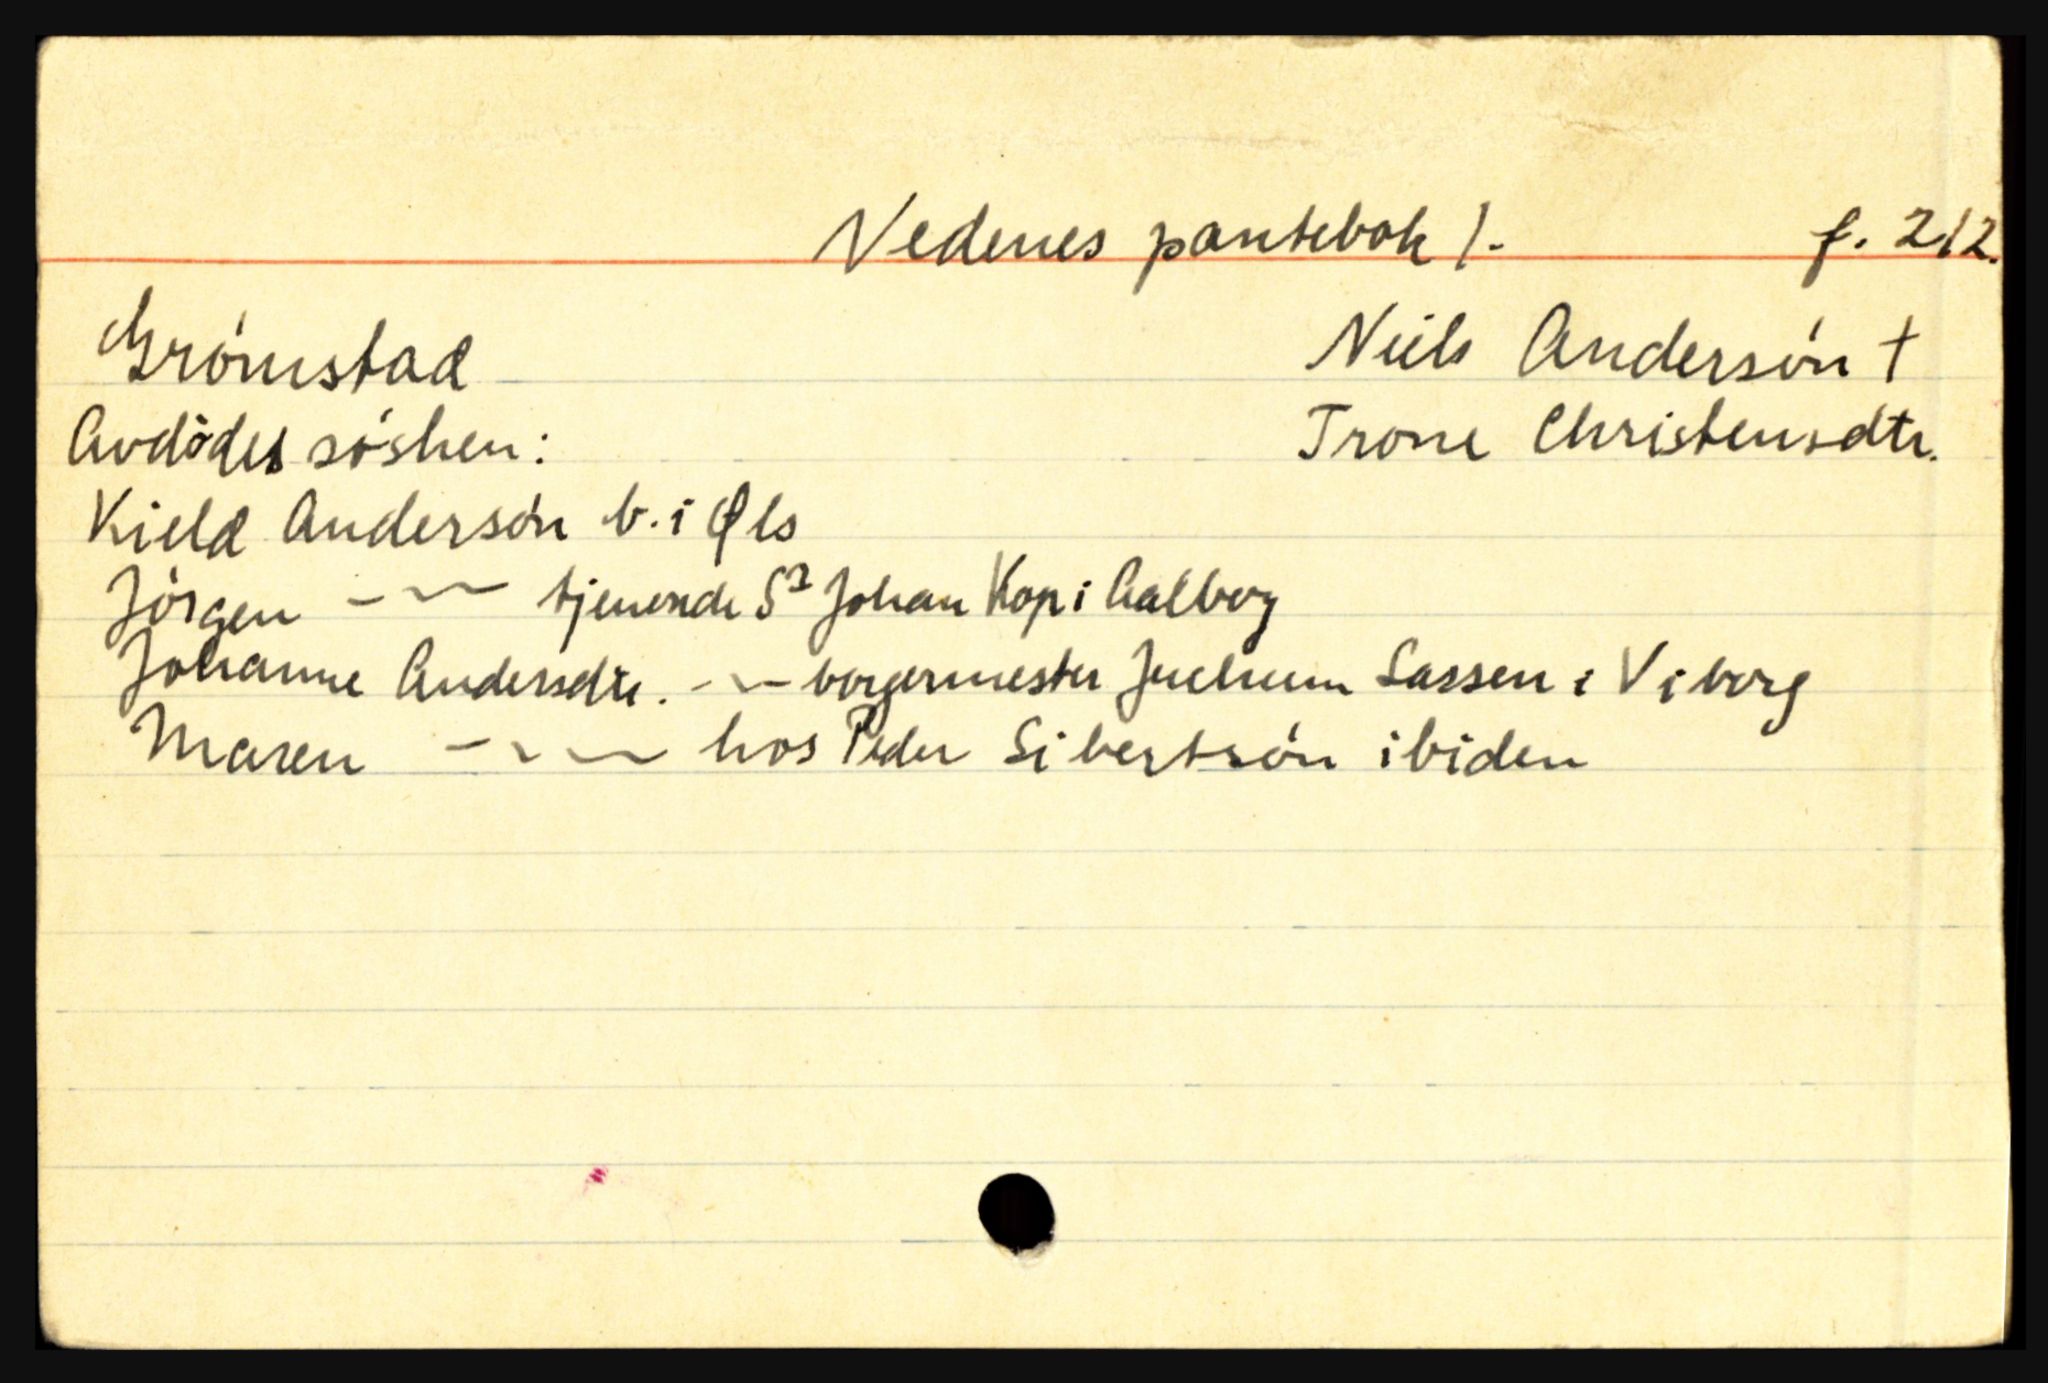 Nedenes pantebok 1. f. 212.
Grömstad Niels Andersön †
Avdödes sösken: Trone Christensdtr.
Kield Andersön b. i Øls
Jörgen - ~ ~ tjenende Sr Johan Kop i Aalborg
Johanne Andersdtr. - ~ - borgermester Juchum Sassen i Viborg
Maren - ~ ~ ~ hos Peder Sibertsön ibiden